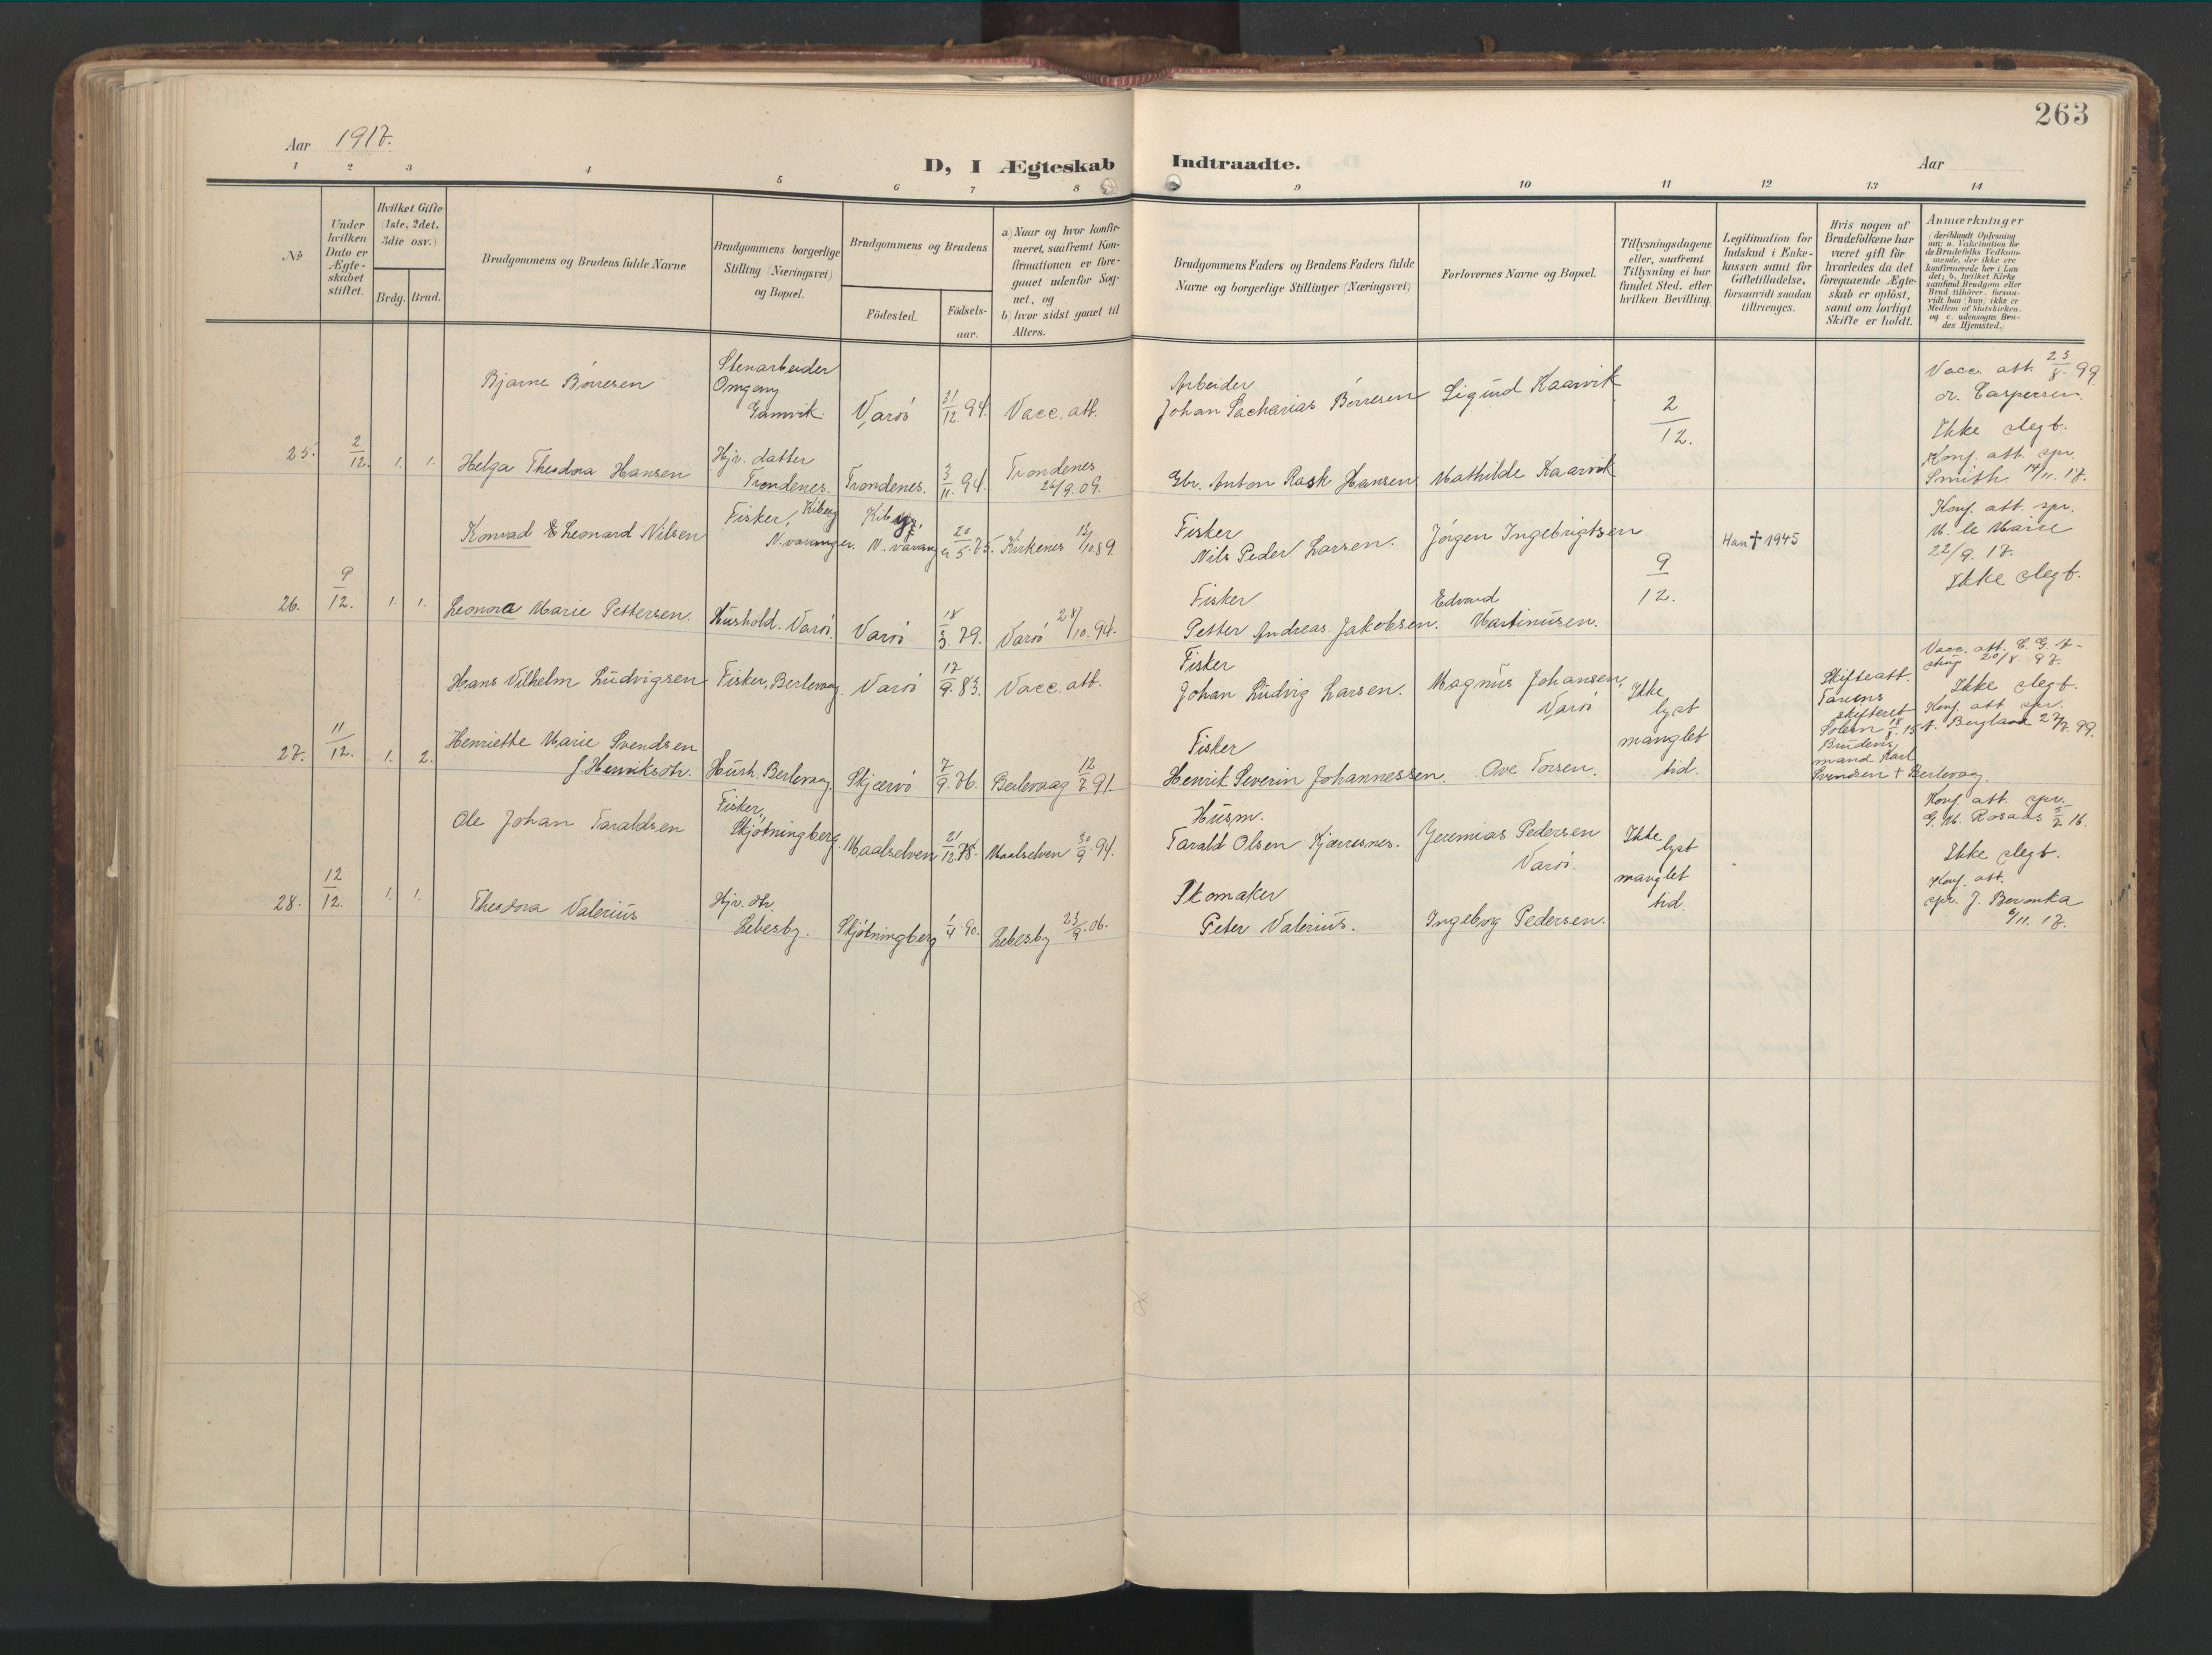 263
Aar 1917.
D, I Ægteskab Indtraadte.
Aar
1 2 3 4 5 6 7 8 9 10 11 12 13 14
No
Under hvilken Dato er Ægte-skabet stiftet.
Hvilket Gifte (1ste, 2det, 3die osv.)
Brdg. Brud.
Brudgommens og Brudens fulde Navne
Brudgommens borgerlige Stilling (Næringsvei) og Bopæl.
Brudgommens og Brudens
Födested. Födsels-aar.
a) Naar og hvor konfir-meret, saafremt Kon-firmationen er fore-gaaet udenfor Sog-net, og
b) hvor sidst gaaet til Alters.
Brudgommens Faders og Brudens Faders fulde Navne og borgerlige Stillinger (Næringsvei)
Forlovernes Navne og Bopæl.
Tillysningsdagene eller, saafremt Tillysning ei har fundet Sted, efter hvilken Bevilling.
Legitimation for Indskud i Enke-kassen samt for Giftetilladelse, forsaavidt saadan tiltrænges.
Hvis nogen af Brudefolkene har været gift før hvorledes da det foregaaende Ægte-skab er oplöst, samt om lovligt Skifte er holdt.
Anmærkninger
(deriblandt Oplysning om: a. Vakcination for de Brudefolks Vedkom-mende, der ikke ere konfirmerede her i Lan det; b. hvilket Kirke samfund Brudgom eller Brud tilhörer, forsaa-vidt han (hun) ikke er Medlem af Statskirken, og c. udensogns Bru-des Hjemsted.)
Bjarne Börresen
Stenarbeider
Omgang
Gamvik.
Varöö 31/12 94. Vacc. att.
Arbeider
Johan Zacharias Börresen
Sigurd Kaarvik
2/12.
Vacc. att. 23/8. 99
dr. Caspersen.
Ikke slegt.
25. 2/12. 1. 1. Helga Theodora Hansen
Hjv. datter
Trondenes. Trondenes. 3/11. 94. Trondenes 26/9.09.
Gbr. Anton Rask Hansen
Mathilde Kaarvik
Konf. att. spr.
Smith 14/11. 17.
Konrad Leonard Nilsen
Fisker, Kiberg
N. varanger.
Kiberg,
N. varanger 20/5.75. Kirkenes 13/10.89.
Fisker
Nils Peder Larsen.
Jörgen Ingebrigtsen
9/12.
Han † 1945
Konf. att. spr.
M. le Maire
22/9. 17.
Ikke slegt.
26. 9/12. 1. 1. Leonora Marie Pettersen.
Hushold. Varöi. Varöö 18/3. 79. Varöö 28/10. 94.
Fisker
Petter Andreas Jakobsen.
Edvard
Martinusen.
Hans Vilhelm Ludvigsen
Fisker, Berlevaag. Varöö 17/9. 83. Vacc. att.
Fisker
Johan Ludvig Larsen.
Magnus Johansen,
Varöi
Ikke
lyst
manglet
tid.
Skifteatt.
Tanens
skifteret
Solem 18/8. 15.
Brudens
mand Karl
Svendsen † Berlevag.
20/8. 97.
Ikke slegt.
Konf. att. spr.
Bergland 27/7. 99.
27. 11/12. 1. 2. Henriette Marie Svendsen
f. Henriksdtr.
Hush. Berlevaag. Skjærvö 7/9. 76. Berlevaag 12/7. 91.
Fisker
Henrik Severin Johannessen.
Ove Torsen.
Ole Johan Taraldsen
Fisker,
Skjötningberg. Maalselven 21/12. 78. Maalselven 30/9. 94.
Husm.
Tarald Olsen Kjærresnes.
Jeremias Pedersen
Varöi.
Ikke
lyst
manglet
tid.
Konf. att. spr.
G. M. Rosaas 5/2 16.
Ikke slegt.
28. 12/12. 1. 1. Theodora Valerius
Hjv. dtr.
Lebesby. Skjötningberg 1/4. 90. Lebesby 23/9. 06.
Skomaker
Peter Valerius.
Ingeborg Pedersen.
Konf. att.
spr. J. Beronka
6/11. 17.